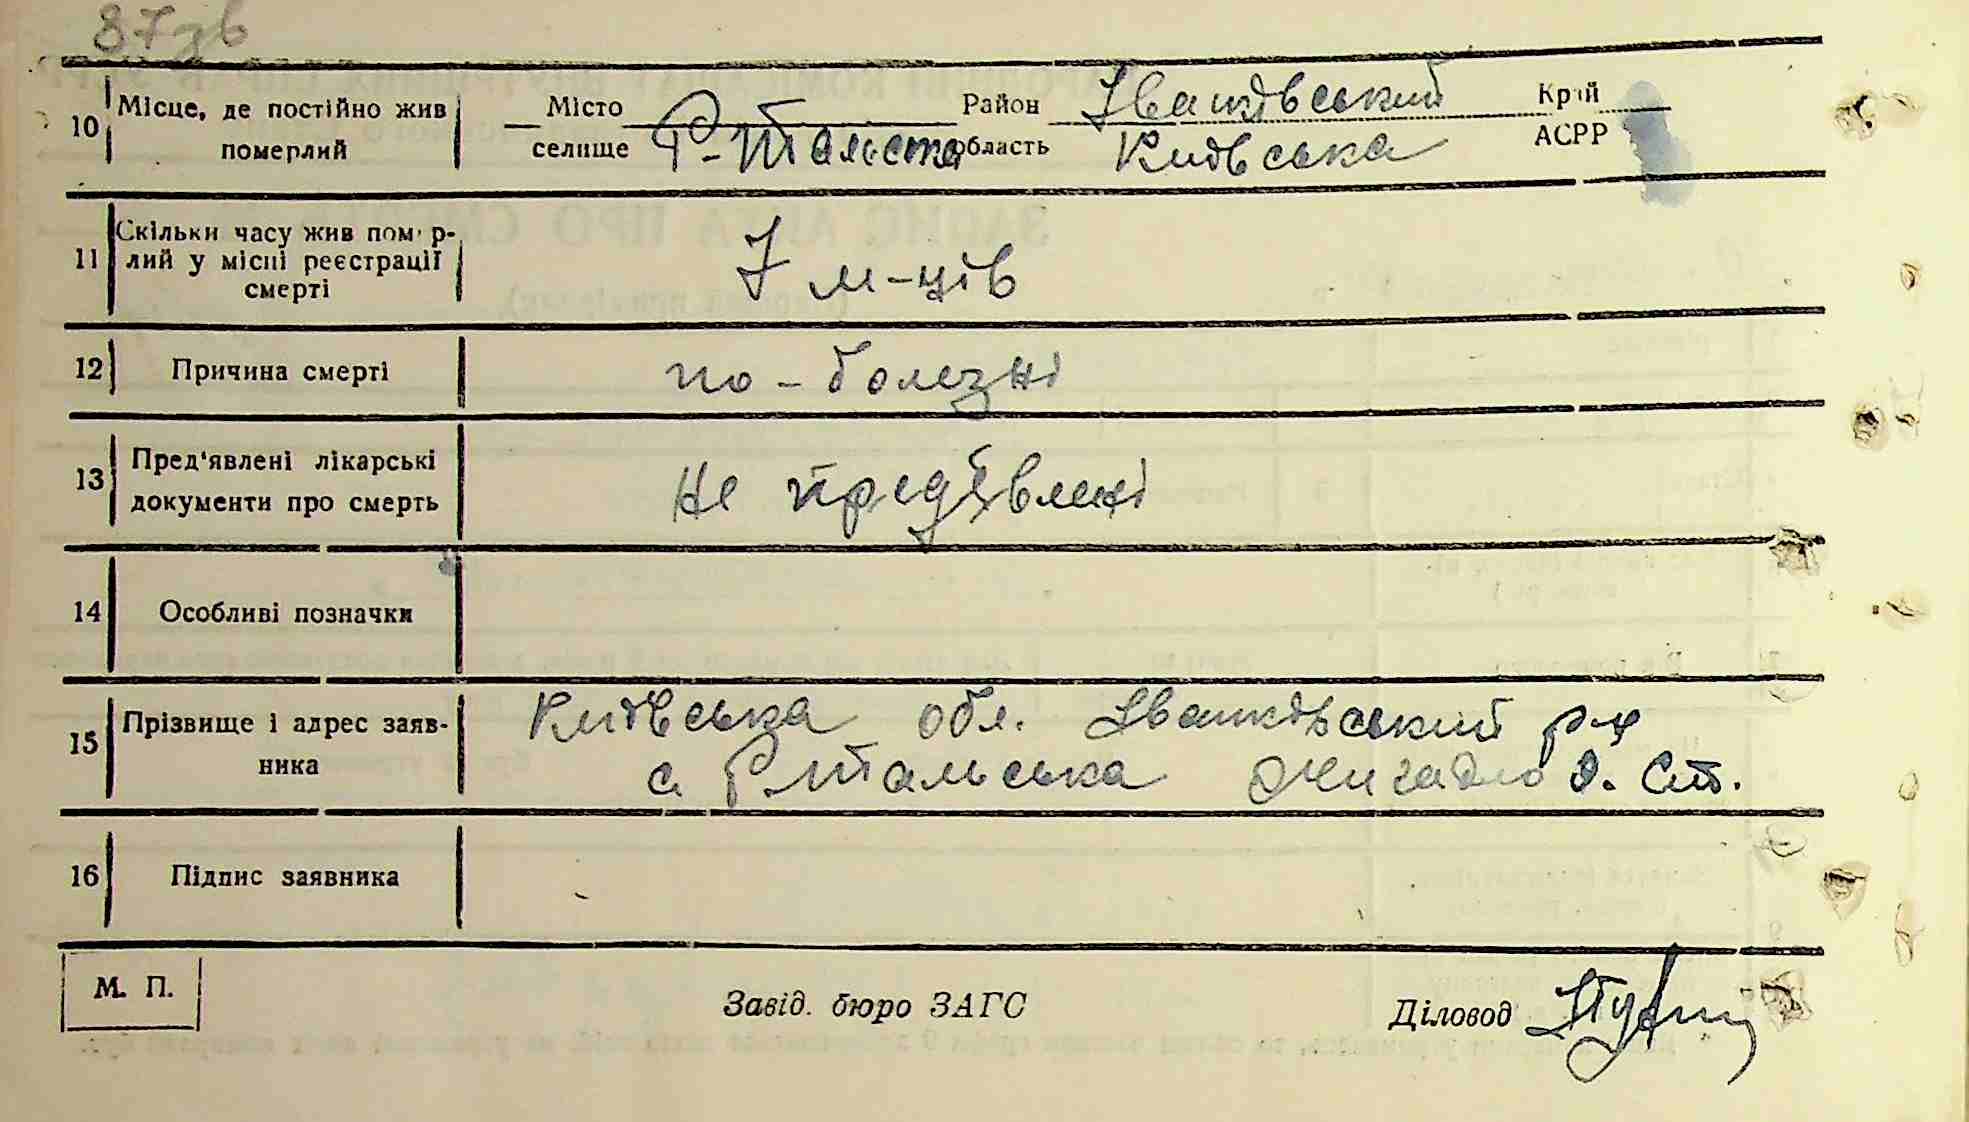 87зв
10 Місце, де постійно жив померлий Місто селище Р-Тальска Район Іванківський область Київська Край АСРР
11 Скільки часу жив помер-
лий у місці реєстрації
смерті
7 м-ців
12 Причина смерті по-болезні
13 Пред'явлені лікарські
документи про смерть
не предявлені
14 Особливі позначки
15 Прізвище і адрес заяв-
ника
Київська обл. Іванківський р-н
с. Р Тальська Жигадло О. Ст.
16 Підпис заявника
М. П.
Завід. бюро ЗАГС Діловод